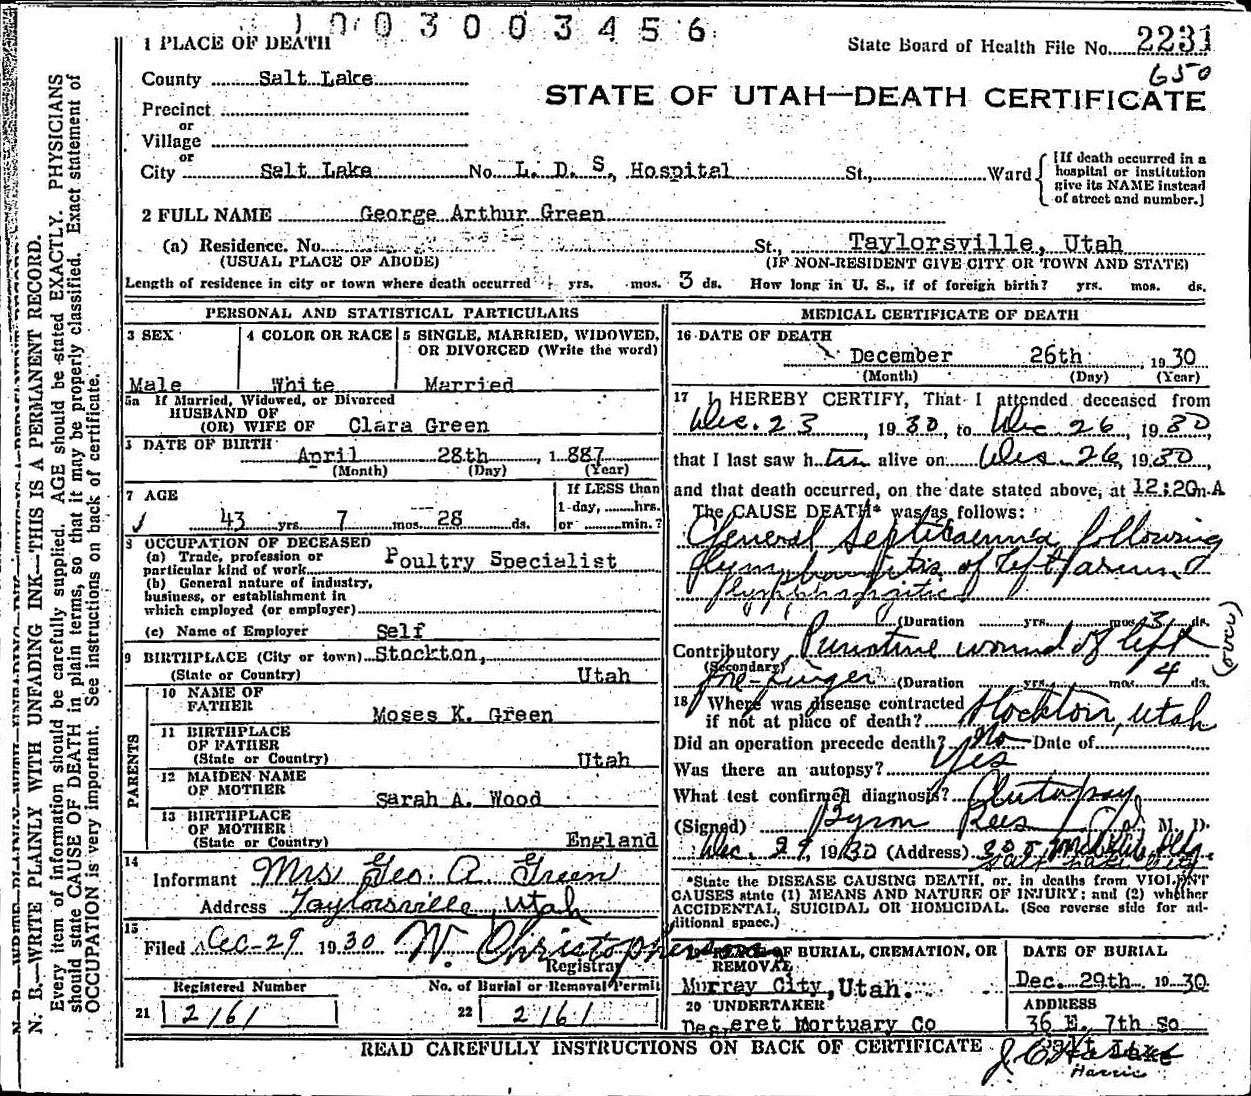 1003003456
1 PLACE OF DEATH
State Board of Health File No. 2231
650
County Salt Lake
STATE OF UTAH—DEATH CERTIFICATE
Precinct
or
Village
or
City Salt Lake No. L. D. S. Hospital St., Ward
[If death occurred in a
hospital or institution
give its NAME instead
of street and number.]
2 FULL NAME George Arthur Green
(a) Residence. No. St., Taylorsville, Utah
(USUAL PLACE OF ABODE) (IF NON-RESIDENT GIVE CITY OR TOWN AND STATE)
Length of residence in city or town where death occurred yrs. mos. 3 ds. How long in U. S., if of foreign birth? yrs. mos. ds.
PERSONAL AND STATISTICAL PARTICULARS
3 SEX
Male
4 COLOR OR RACE
White
5 SINGLE, MARRIED, WIDOWED,
OR DIVORCED (Write the word)
Married
5a If Married, Widowed, or Divorced
HUSBAND OF
(OR) WIFE OF Clara Green
DATE OF BIRTH
April 28th, 1887
(Month) (Day) (Year)
7 AGE
43 yrs. 7 mos. 28 ds.
If LESS than
1-day, hrs.
or min.?
8 OCCUPATION OF DECEASED
(a) Trade, profession or
particular kind of work Poultry Specialist
(b) General nature of industry,
business, or establishment in
which employed (or employer)
(c) Name of Employer Self
9 BIRTHPLACE (City or town) Stockton,
(State or Country) Utah
PARENTS
10 NAME OF
FATHER Moses K. Green
11 BIRTHPLACE
OF FATHER
(State or Country) Utah
12 MAIDEN NAME
OF MOTHER Sarah A. Wood
13 BIRTHPLACE
OF MOTHER
(State or Country) England
14
Informant Mrs Geo. A. Green
Address Taylorsville, Utah
15
Filed Dec-29 1930 W. Christopherson
Registrar
Registered Number
21 2161
No. of Burial or Removal Permit
22 2161
MEDICAL CERTIFICATE OF DEATH
16 DATE OF DEATH
December 26th, 1930
(Month) (Day) (Year)
17 I HEREBY CERTIFY, That I attended deceased from
Dec. 23, 1930, to Dec 26, 1930,
that I last saw h alive on Dec. 26, 1930,
and that death occurred, on the date stated above, at 12:20 A
The CAUSE DEATH* was as follows:
General Septicaemia following
of left arm
(Duration yrs. mos. 3 ds.
Contributory Puncture wound of left
(Secondary)
fore-finger (Duration yrs. mos. 4 ds.
(over)
18 Where was disease contracted
if not at place of death? Stockton, Utah
Did an operation precede death? No Date of
Was there an autopsy? Yes
What test confirmed diagnosis? Autopsy
(Signed) Byron Rees M. D.
Dec. 27, 1930 (Address)
*State the DISEASE CAUSING DEATH, or, in deaths from VIOLENT
CAUSES state (1) MEANS AND NATURE OF INJURY; and (2) whether
ACCIDENTAL, SUICIDAL OR HOMICIDAL. (See reverse side for ad-
ditional space.)
PLACE OF BURIAL, CREMATION, OR
REMOVAL
Murray City, Utah.
DATE OF BURIAL
Dec. 29th 1930
20 UNDERTAKER
Deseret Mortuary Co
ADDRESS
36 E. 7th So
Salt Lake
Harris
READ CAREFULLY INSTRUCTIONS ON BACK OF CERTIFICATE
N. B.—WRITE PLAINLY WITH UNFADING INK—THIS IS A PERMANENT RECORD.
Every item of information should be carefully supplied. AGE should be stated EXACTLY. PHYSICIANS
should state CAUSE OF DEATH in plain terms, so that it may be properly classified. Exact statement of
OCCUPATION is very important. See instructions on back of certificate.